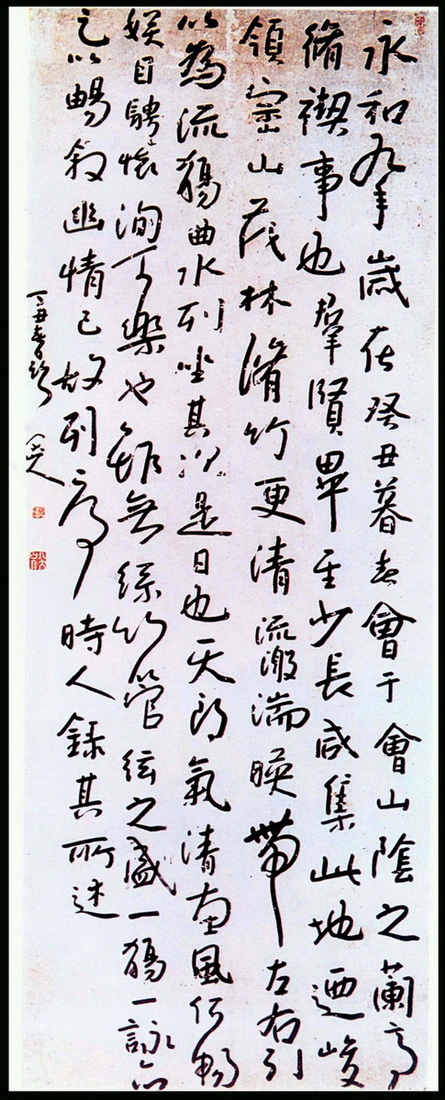 永和九年歲在癸丑暮春會于會山陰之蘭亭
脩禊事也羣賢畢至少長咸集此地迺峻
領崇山茂林脩竹更清流激湍暎帶左右引
以為流觴曲水列坐其次是日也天朗氣清惠風和暢
娛目騁懷洵可樂也雖無絲竹管絃之盛一觴一詠亦
足以暢敘幽情已故列序時人錄其所述
丁丑春